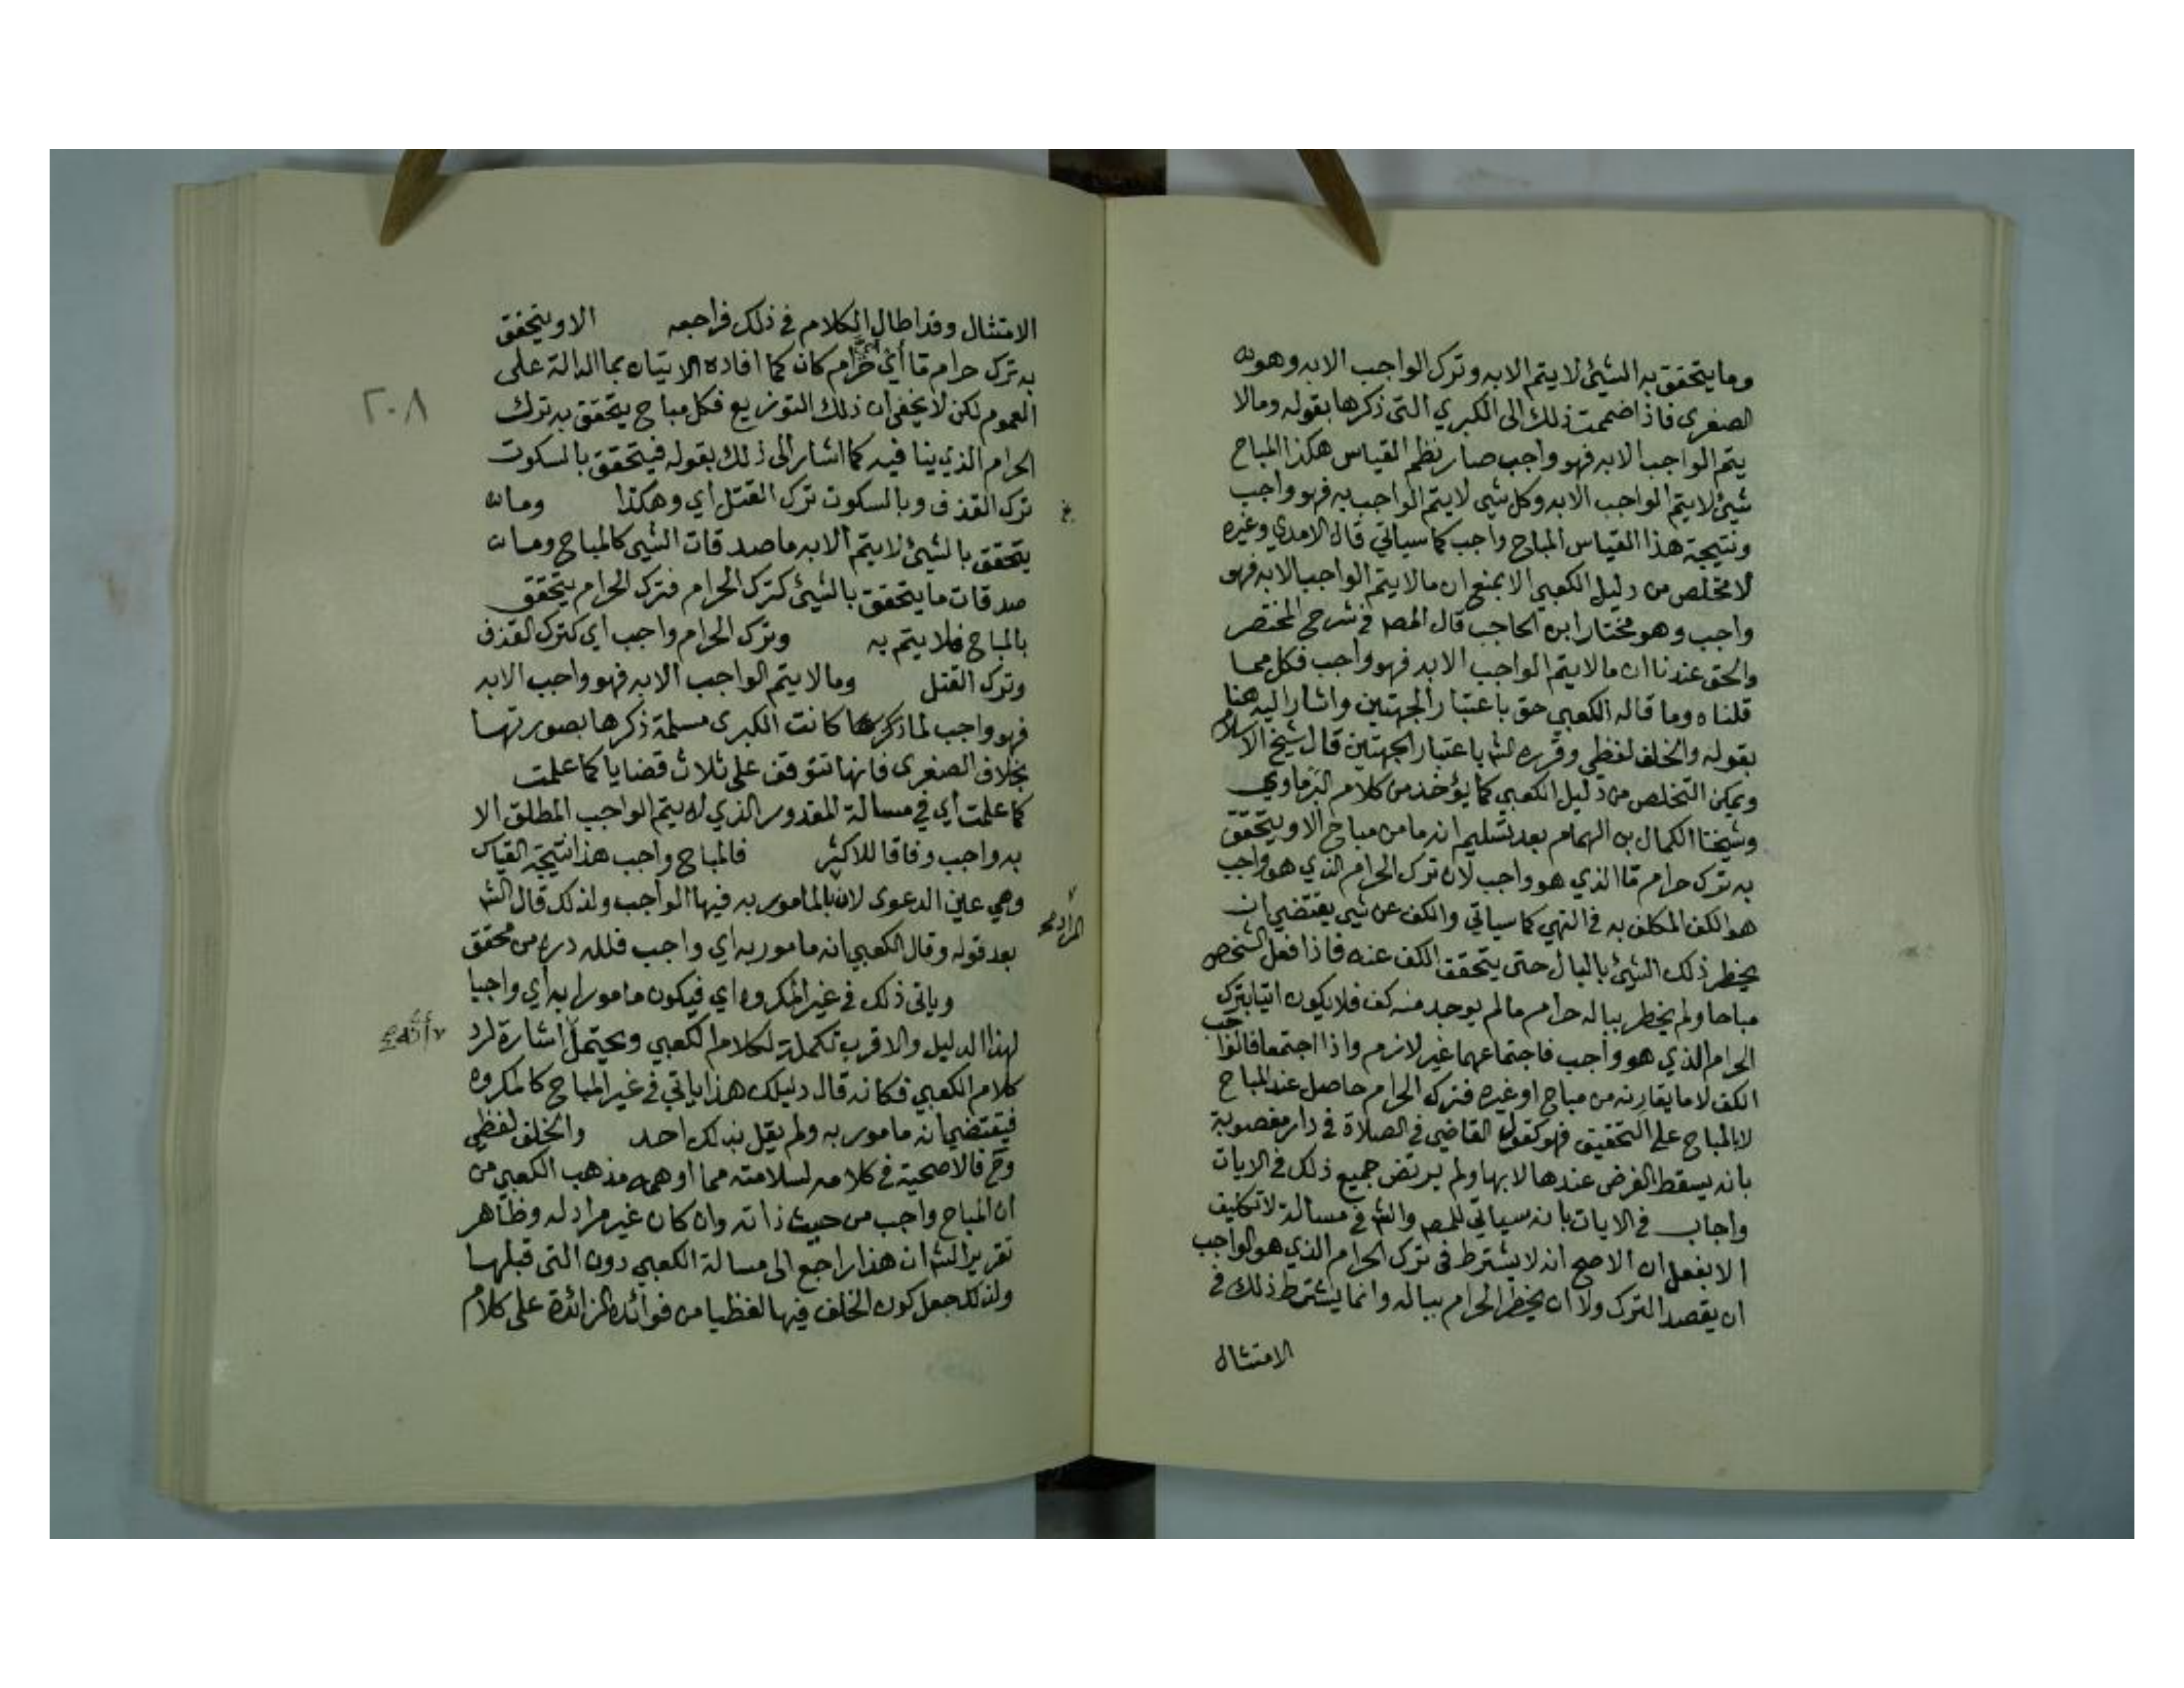 وما يتحقق به الشئ لا يتم الا به وترك الواجب الا به وهو
الصغرى فاذا ضممت ذلك الى الكبري التى ذكرها بقوله وما لا
يتم الواجب الا به فهو واجب صار نظم القياس هكذا المباح
شئ لا يتم الواجب الا به وكل شي لا يتم الواجب به فهو واجب
ونتيجة هذا القياس المباح واجب كما سياتي قال الامدي وغيره
لا مخلص من دليل الكعبي الا بمنع ان ما لا يتم الواجب الا به فهو
واجب وهو مختار ابن الحاجب قال المصـ في شرحي المختصر
والحق عندنا ان ما لا يتم الواجب الا به فهو واجب فكل مما
قلناه وما قاله الكعبي حق باعتبار الجهتين واشار اليه هنا
بقوله والخلف لفظي وقرره الشـ باعتبار الجهتين قال شيخ الاسلام
ويمكن التخلص من دليل الكعبي كما يؤخذ من كلام البرماوي
وشيخنا الكمال بن الهمام بعد تسليم انه ما من مباح الا ويتحقق
به ترك حرام ما الذي هو واجب لان ترك الحرام الذي هو واجب
هو الكف المكلف به في النهي كما سياتي والكف عن شي يقتضي ان
يخطر ذلك الشئ بالبال حتى يتحقق الكف عنه فاذا فعل الشخص
مباحا ولم يخطر بباله حرام ما لم يوجد منه كف فلا يكون اتيا بترك
الحرام الذي هو واجب فاجتماعهما غير لازم واذا اجتمعا فالواجب
الكف لا ما يقارنه من مباح او غيره فترك الحرام حاصل عند المباح
لا بالمباح على التحقيق فهو كقول القاضي في الصلاة في دار مغصوبة
بانه يسقط الفرض عندها لا بها ولم يرتض جميع ذلك في الايات
واجاب في الايات بانه سياتي للمصـ والشـ في مسالة لا تكليف
الا بفعل ان الاصح انه لا يشترط فى ترك الحرام الذي هو الواجب
ان يقصد الترك ولا ان يخطر الحرام بباله وانما يشترط ذلك في
الامتثال
الامتثال وقد اطال الكلام في ذلك فراجعه الا ويتحقق
به ترك حرام ما أي حرام كان كما افاده الاتيان بما الدالة على
٢٠٨
العموم لكن لا يخفى ان ذلك التوزيع فكل مباح يتحقق به ترك
الحرام الذي ينافيه كما اشار الى ذلك بقوله فيتحقق بالسكوت
ترك القذف وبالسكوت ترك القتل اي وهكذا وما
يتحقق بالشئ لا يتم الا به ماصدقات الشي كالمباح وما
صدقات ما يتحقق بالشئ كترك الحرام فترك الحرام يتحقق
بالمباح فلا يتم به وترك الحرام واجب اي كترك القذف
وترك القتل وما لا يتم الواجب الا به فهو واجب الا به
فهو واجب لما ذكر كانت الكبرى مسلمة ذكرها بصورتها
بخلاف الصغرى فانها تتوقف على ثلاث قضايا كما علمت
كما علمت اي في مسالة المقدور الذي لا يتم الواجب المطلق الا
به واجب وفاقا للاكثر فالمباح واجب هذا نتيجة القياس
وهي عين الدعوى لان بالمامور به فيها الواجب ولذلك قال الشـ
المراد
بعد قوله وقال الكعبي انه مامور به اي واجب فلله دره من محقق
وياتى ذلك في غير المكروه اي فيكون مامورا به اي واجبا
لهذا الدليل والاقرب تكملة لكلام الكعبي ويحتمل اشارة لرد
كلام الكعبي فكانه قال دليلك هذا ياتي في غير المباح كالمكروه
فيقتضي انه مامور به ولم يقل بذلك احد والخلف لفظي
وح فالاصحية في كلامه لسلامته مما اوهمه مذهب الكعبي من
ان المباح واجب من حيث ذاته وان كان غير مراد له وظاهر
تقرير الشـ ان هذا راجع الى مسالة الكعبي دون التى قبلها
ولذلك جعل كون الخلف فيها لفظيا من فوائده الزائدة على كلام